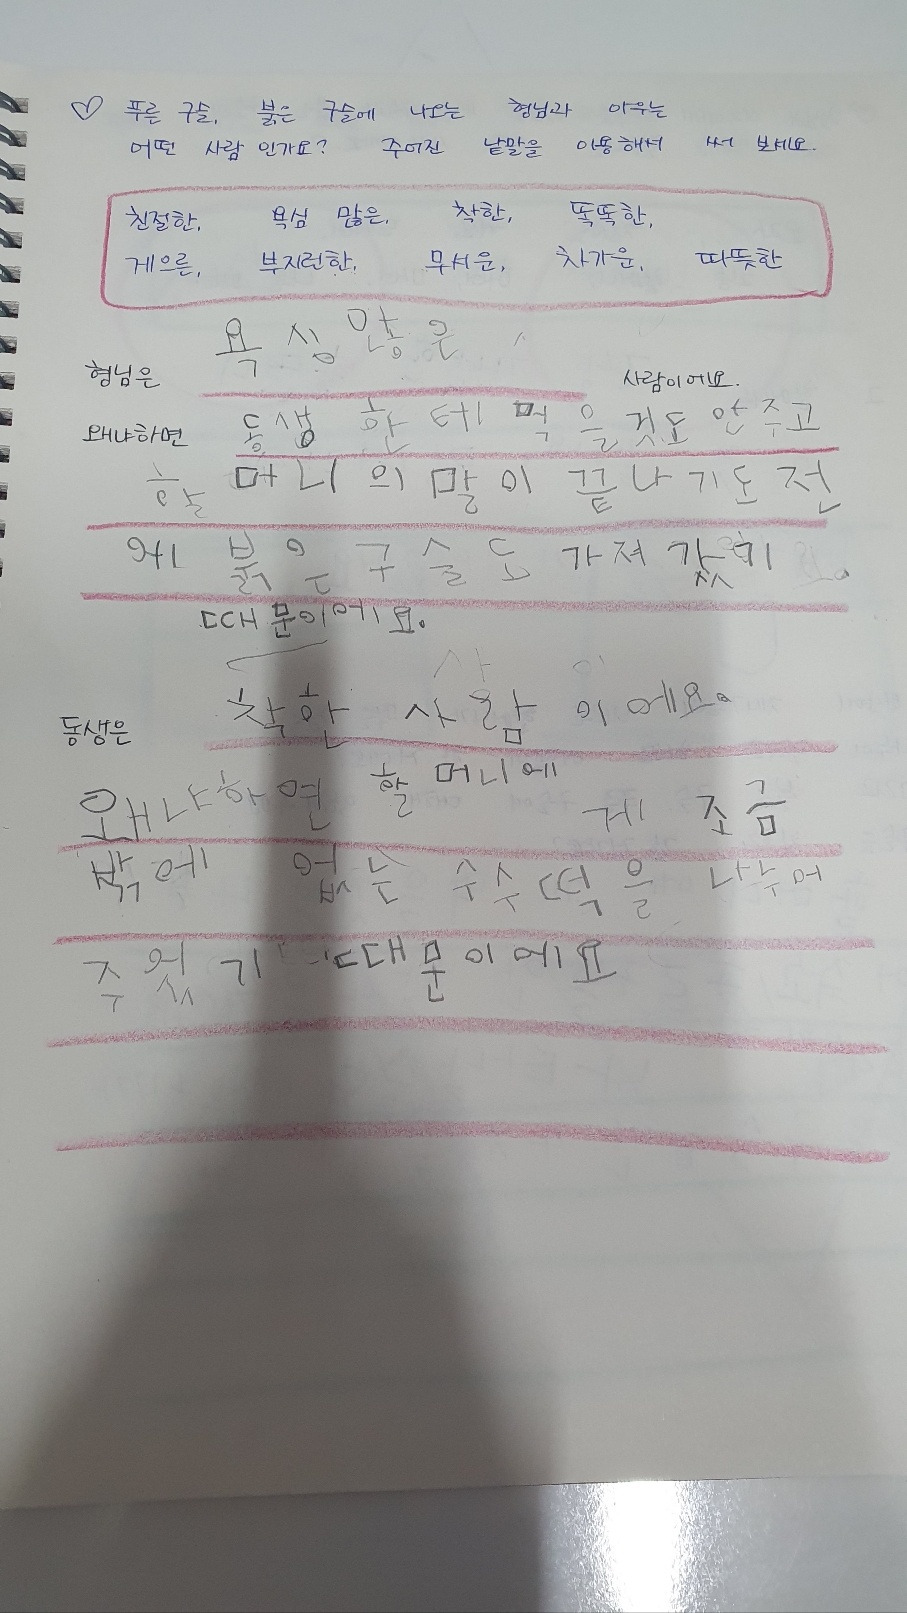 ♡ 푸른 구슬, 붉은 구슬에 나오는 형님과 아우는
어떤 사람 인가요? 주어진 낱말을 이용해서 써 보세요.
친절한, 욕심 많은, 착한, 똑똑한,
게으른, 부지런한, 무서운, 차가운, 따뜻한
형님은 욕심 많은 사람이에요.
왜냐하면 동생 한테 먹을것도 안주고
할 머니의 말이 끝나기도 전
에 붉은 구슬도 가져 갔기
때문이에요.
동생은 착한 사람 이에요.
왜냐하면 할머니에게 조금
밖에 없는 수수떡을 나누어
주었기 때문이에요